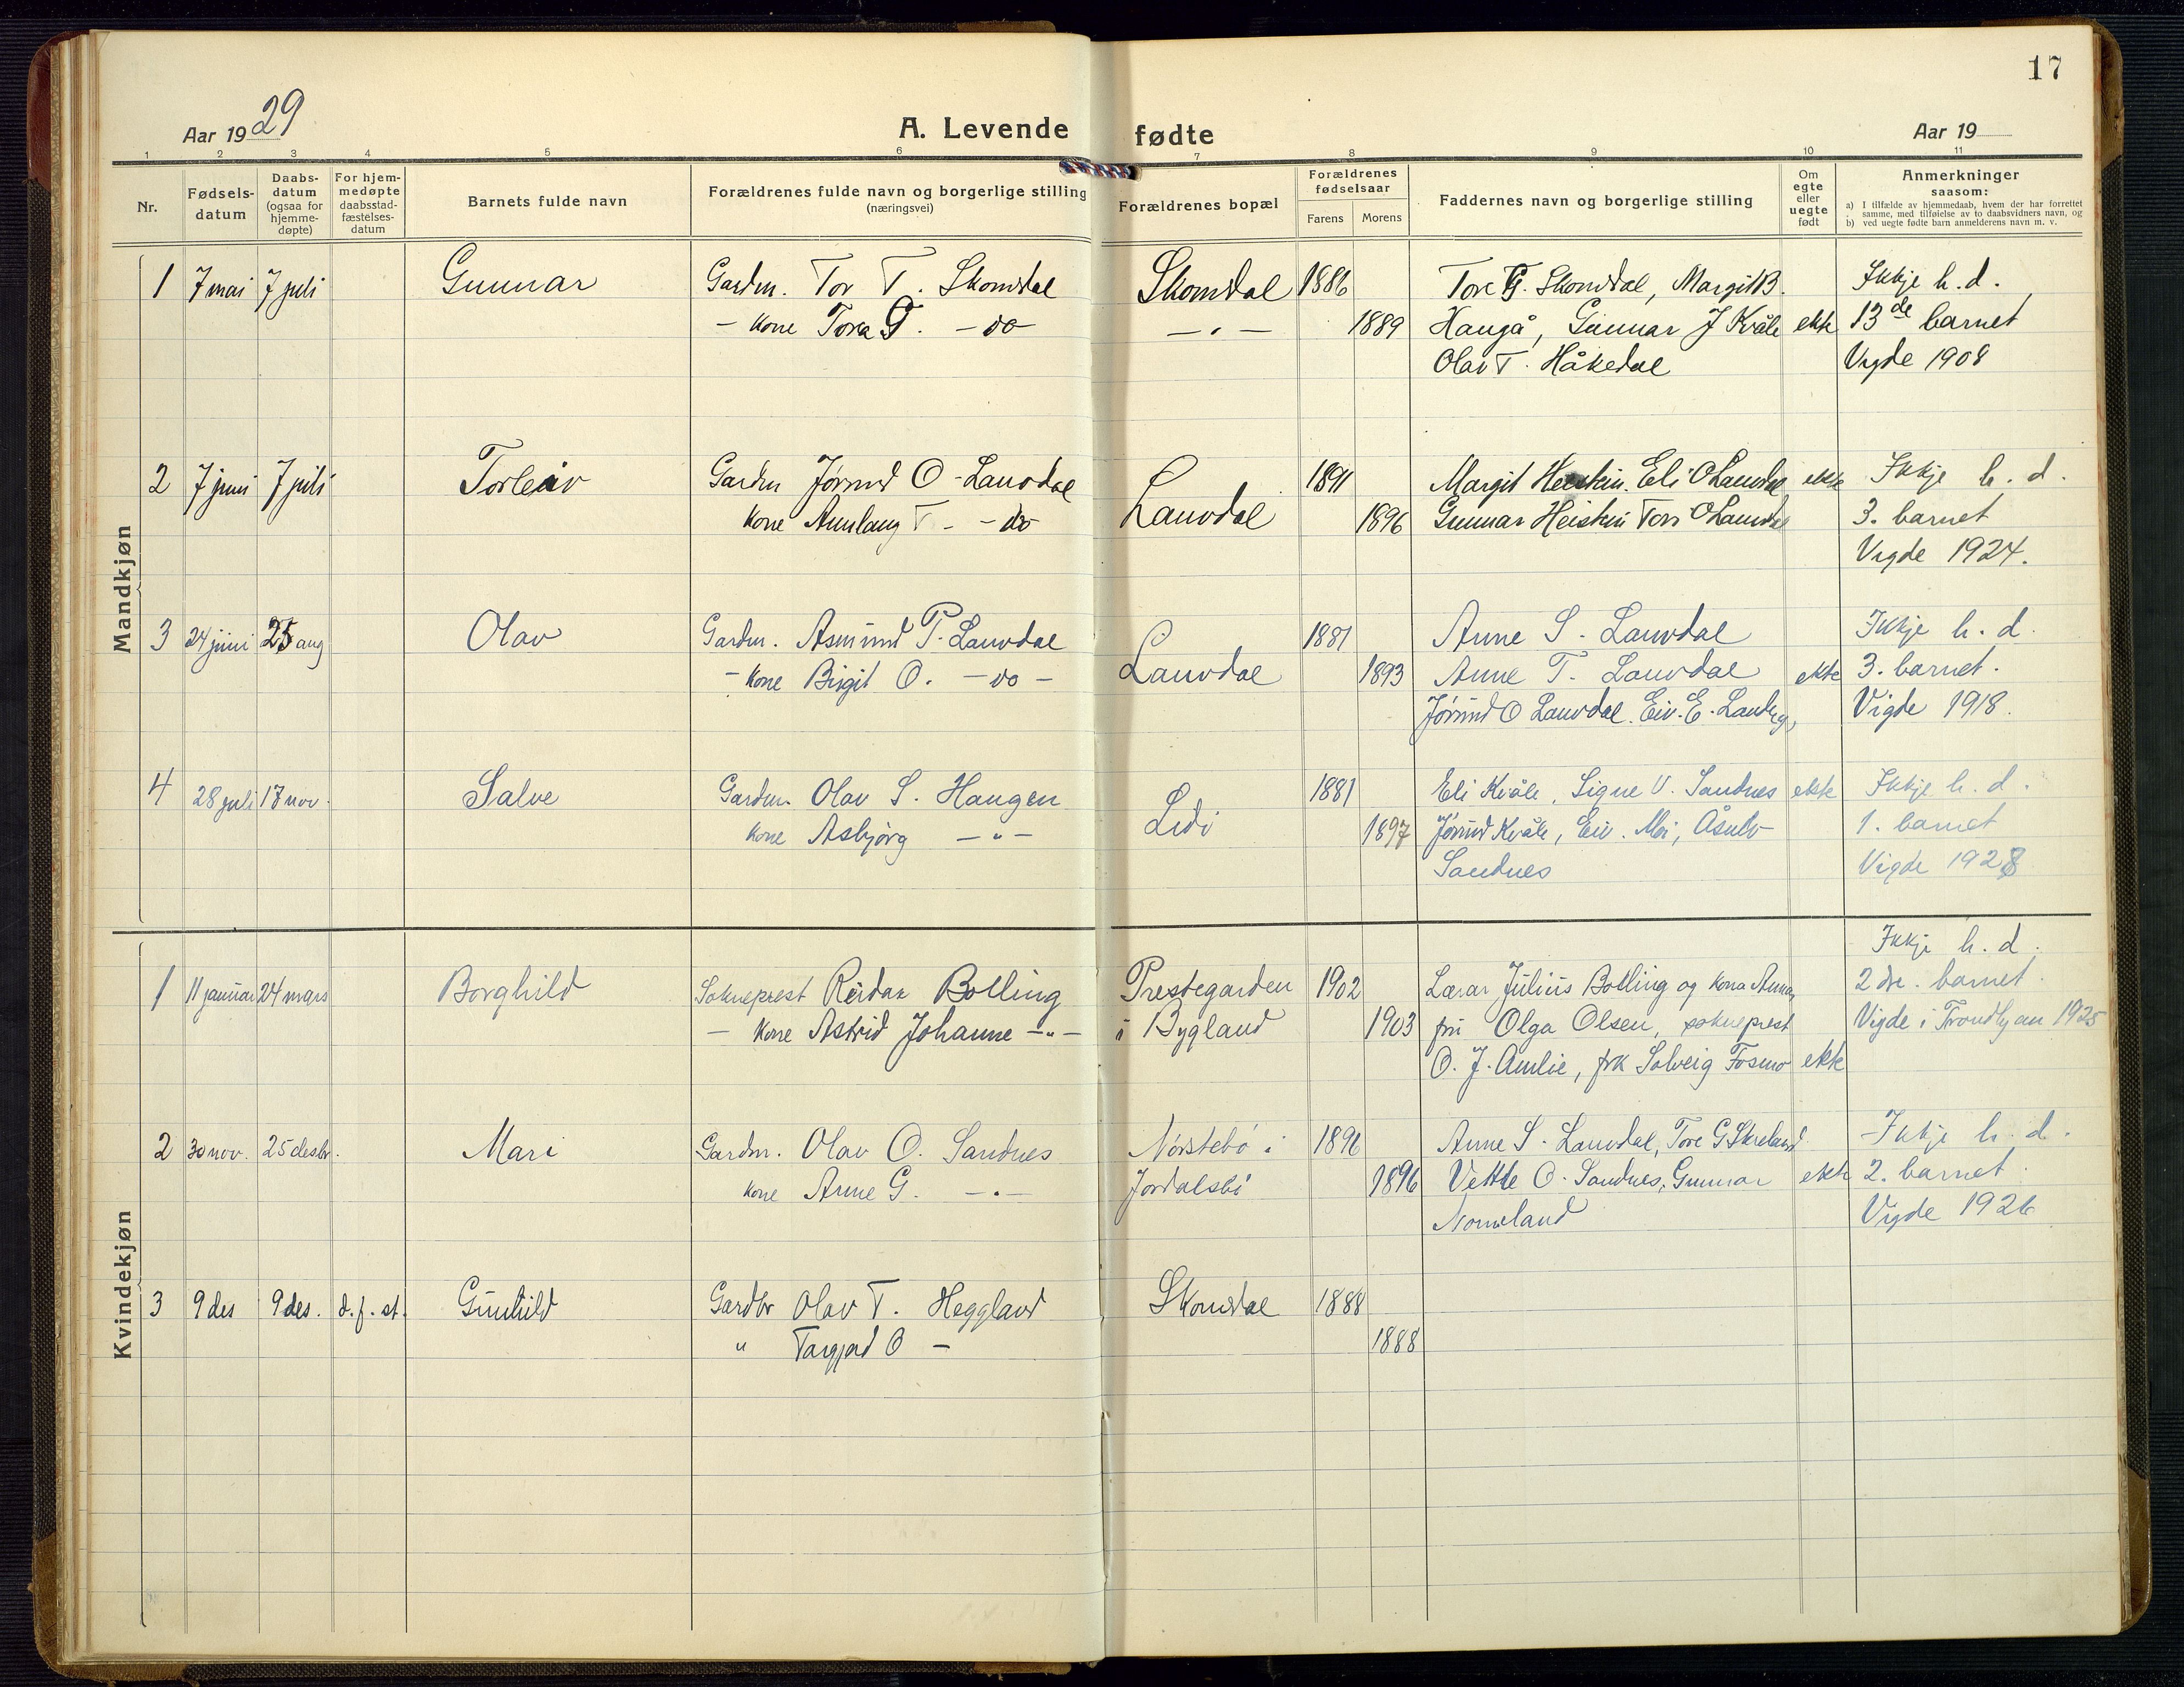 17
Aar 1929
A. Levende fødte
Aar 19
1 2 3 4 5 6 7 8 9 10 11
Nr.
Fødsels-
datum
Daabs-
datum
(ogsaa for
hjemme-
døpte)
For hjem-
medøpte
daabsstad-
fæstelses-
datum
Barnets fulde navn
Forældrenes fulde navn og borgerlige stilling
(næringsvei)
Forældrenes bopæl
Forældrenes
fødselsaar
Farens Morens
Faddernes navn og borgerlige stilling
Om
egte
eller
uegte
født
Anmerkninger
saasom:
a) I tilfælde av hjemmedaab, hvem der har forrettet
samme, med tilføielse av to daabsvidners navn, og
b) ved uegte fødte barn anmelderens navn m. v.
Mandkjøn
1 7 mai 7 juli Gunnar Gardm. Tor T. Skomdal Skomdal 1886 Tore G. Skomdal, Margit B. Ikkje h. d.
- kone Tora G. - do - - " - 1889 Haugå, Gunnar J Kvåle ekte 13de barnet
Olav T. Håkedal Vigde 1908
2 7 juni 7 juli Torleiv Gardm Jørund O - Lauvdal Lauvdal 1891 Margit Heistein. Eli O Lauvdal ekte Ikkje h. d.
kone Aunlaug T - - do - 1896 Gunnar Heistein Tore O Lauvdal 3. barnet
Vigde 1924.
3 24 juni 25 aug Olav Gardm. Asmund P. Lauvdal Lauvdal 1881 Anne S. Lauvdal Ikkje h. d.
- kone Birgit O. - do - 1893 Anne T. Lauvdal ekte 3. barnet.
Jørund O Lauvdal. Eiv. E. Vigde 1918.
4 28 juli 17 nov. Salve Gardm. Olav S. Haugen Lidi 1881 Eli Kvåle, Signe V. Sandnes ekte Ikkje h. d.
kone Asbjørg - " - 1897 Jørund Kvåle, Eiv. Moi, Åsulv 1. barnet
Sandnes Vigde 1928
Kvindekjøn
Ikkje h. d.
1 11 januar 24 mars Borghild Sokneprest Reidar Bolling Prestegarden 1902 Lærar Julius Bolling og kona Anna, 2dre. barnet.
- kone Astrid Johanne - " - i Bygland 1903 fru Olga Olsen, sokneprest Vigde i Trondhjem 1925
O. J. Amlie, frk Solveig Fosmo ekte
2 30 nov. 25 desbr. Mari Gardm. Olav O. Sandnes Norstebø i 1896 Anne S. Lauvdal, Tore G Skreland Ikkje h. d.
kone Anne G. - " - Jordalsbø 1896 Vettle O. Sandnes, Gunnar ekte 2. barnet
Nomeland Vigde 1926
3 9 des 9 des. d. f. st. Gunhild Gardbr Olav T. Heggland Skomdal 1888
" Targjerd O - 1888